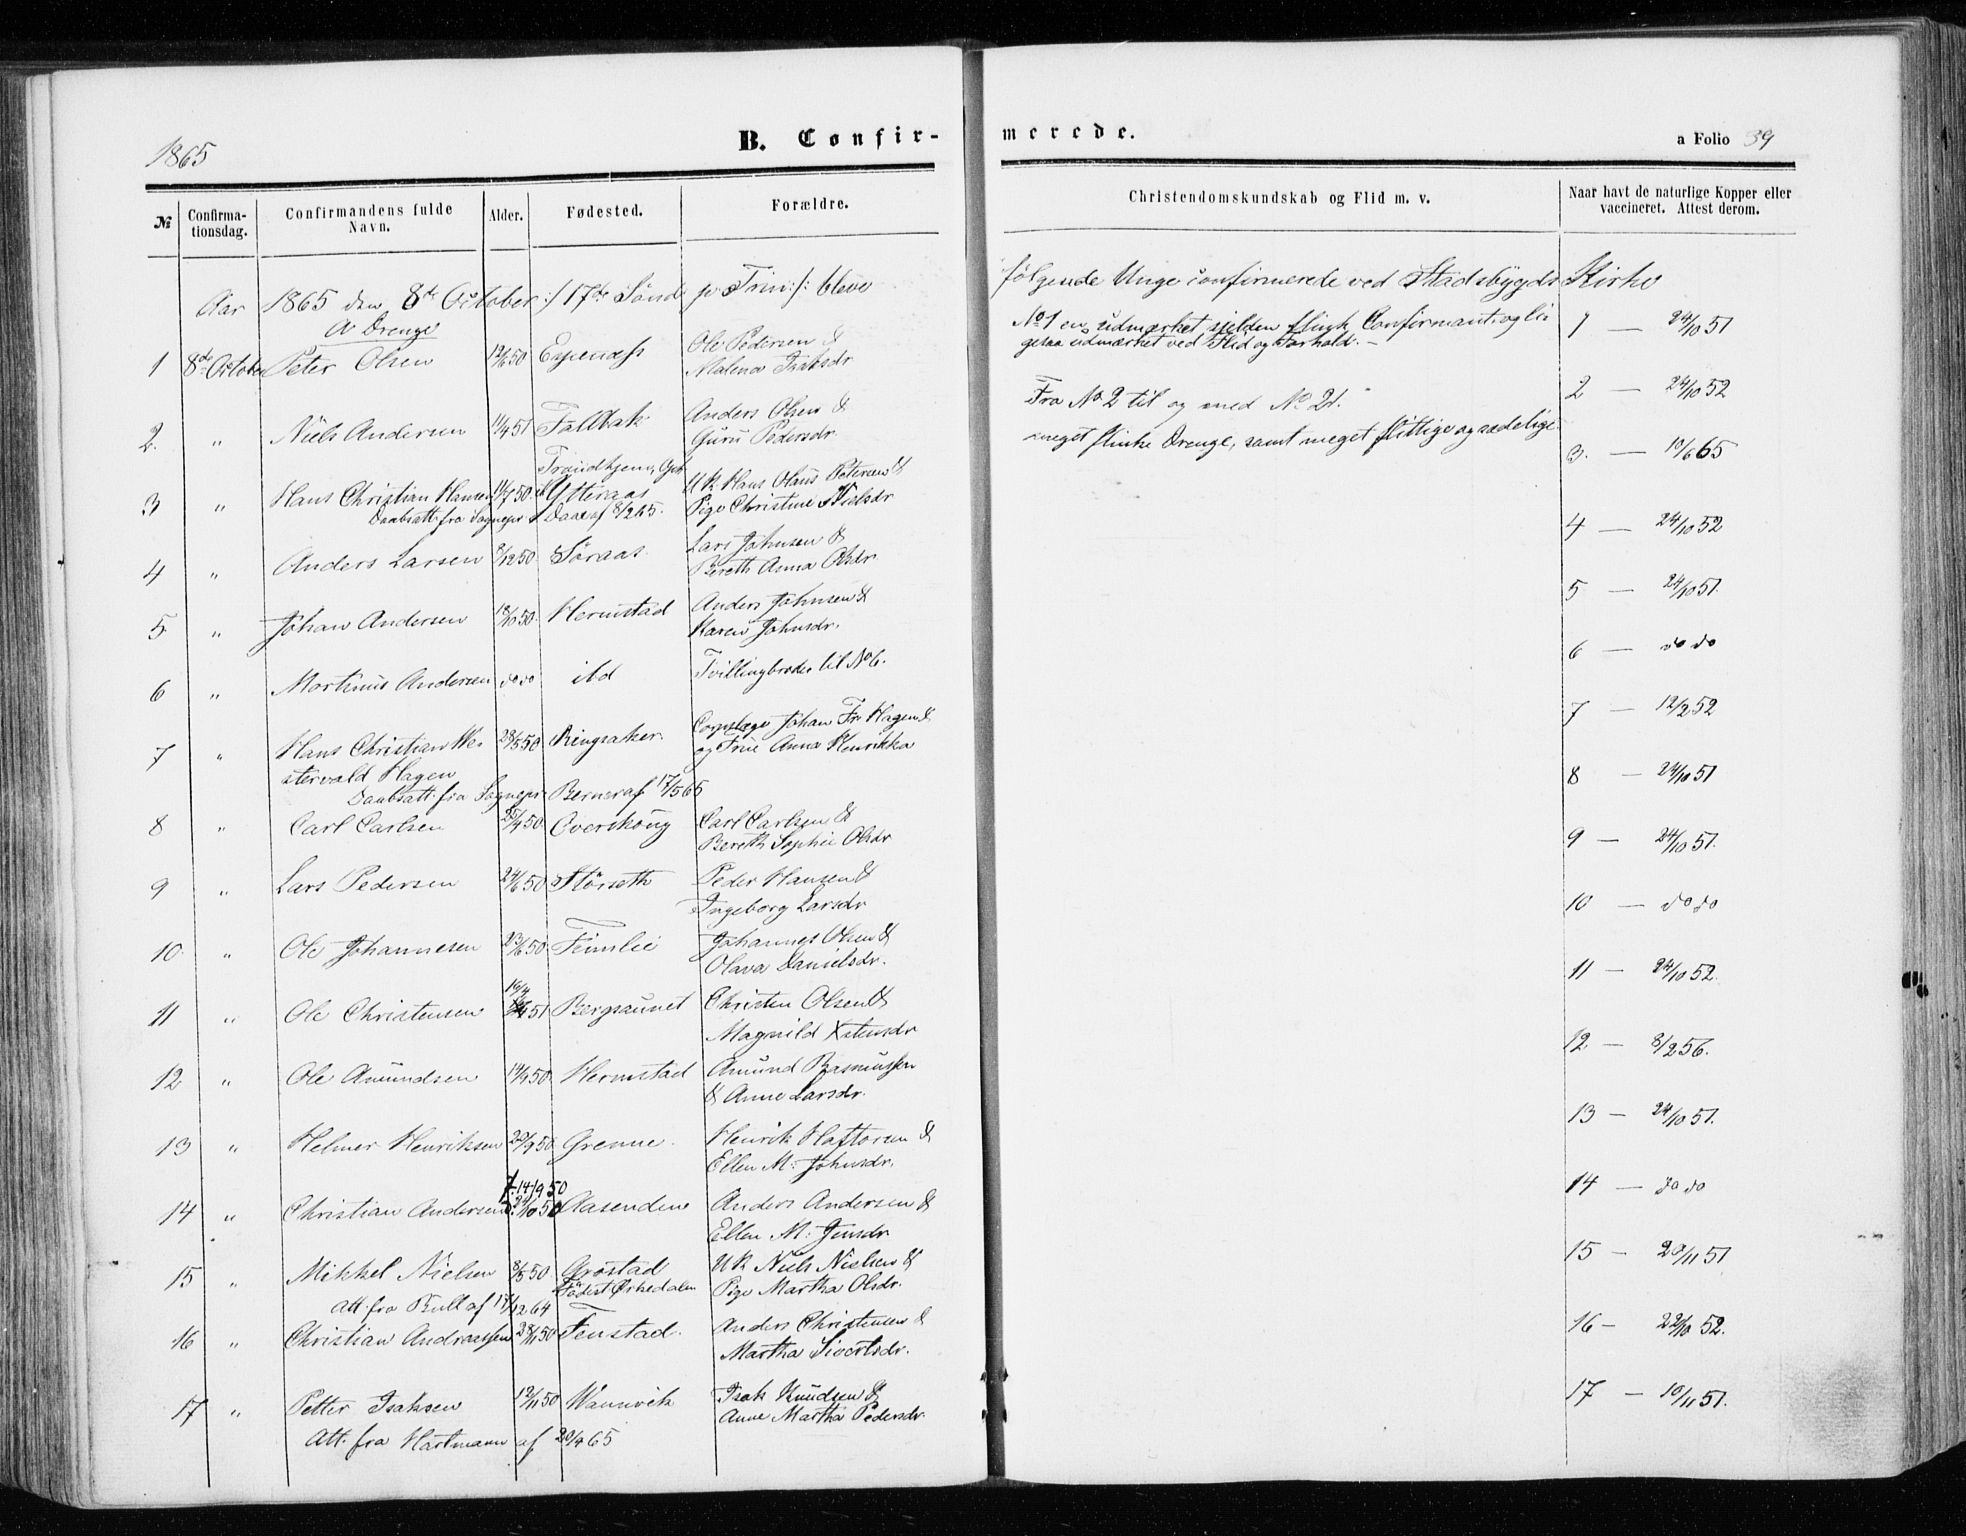 1865
B. Confir-
merede.
a Folio 39
№
Confirma-
tionsdag.
Confirmandens fulde
Navn.
Alder.
Fødested.
Forældre.
Christendomskundskab og Flid m. v.
Naar havt de naturlige Kopper eller
vaccineret. Attest derom.
Aar 1865 den 8de October :/ 17de Sönd p Trin:/: bleve følgende Unge confirmerede ved Stadsbygds Kirke
a Drenge
1 8de October Peter Olsen 12/6 50 Espenæss Ole Pedersen &
Malena Isaksdr
No 1 en udmærket sjelden flink Confirmant og li-
gesaa udmærket ved Flid og Forhold. -
1 — 24/10 51
2. " Niels Andersen 11/4 51 Faldbak Anders Olsen &
Guru Pedersdr
Fra No 2 til og med No 21.
meget flinke Drenge, samt meget flittige og sædelige
2 — 24/10 52
Trondhjem,
3 " Hans Christian Hansen 11/7 50. Ytteraas U.K. Hans Olaus Petersen &
Daabsatt. fra Sognepr. Daae af 8/2 65. Pige Christine Nielsdr
3. — 19/6 65
4 " Anders Larsen 8/12 50 Söraas Lars Johnsen &
Bereth Anna Olsdr
4 — 24/10 52
5. " Johan Andersen 18/10 50. Hermstad Anders Johnsen &
Karen Johnsdr.
5 — 24/10 51.
6 " Martinus Andersen do do ibd Tvillingbroder til No 6.
6 — do do
7 " Hans Christian We- 28/5 50 Ringsaker. Corpslæge Johan Fr Hagen &
stervald Hagen og Frue Anna Henrikka
Daabsatt. fra Sognepr. Berner af 17/5 65
7 — 12/2 52
8 " Carl Carlsen 25/4 50 Overskoug Carl Carlsen &
Bereth Sophie Olsdr
8 — 24/10 51
9 " Lars Pedersen 24/6 50 Störseth Peder Hansen &
Ingeborg Larsdr
9 — 24/10 51.
10 " Ole Johannesen 23/6 50 Fimlie Johannes Olsen &
Olava Danielsdr.
10 — do do
11 " Ole Christensen 16/4 51 Bergsaunet Christen Olsen &
Magnild
11 — 24/10 52.
12 " Ole Amundsen 14/9 50. Hermstad Amund Rasmussen
& Anne Larsdr.
12 — 8/2 56.
13 " Helmer Henriksen 22/9 50 Grenne. Henrik Haftorsen &
Ellen M: Johnsdr.
13 — 24/10 51.
f. 14/9 50
14 " Christian Andersen d. 24/10 50 Aasendene Anders Andersen &
Ellen M: Jensdr
14 — do do
15 " Mikkel Nielsen 8/5 50 Gröstad U.K. Niels Nielsen &
Födest Orkedalen Pige Martha Olsdr.
Att. fra Bull af 17/12 64
15 — 20/11 51
16 " Christian Andreassen 28/11 50 Fenstad. Anders Christensen &
Martha Sivertsdr.
16 — 22/10 52.
17 " Petter Isaksen 12/11 50 Wannvik Isak Knudsen &
Anne Martha Pedersdr.
Att. fra Hartmann af 20/4 65
17 — 10/11 51.